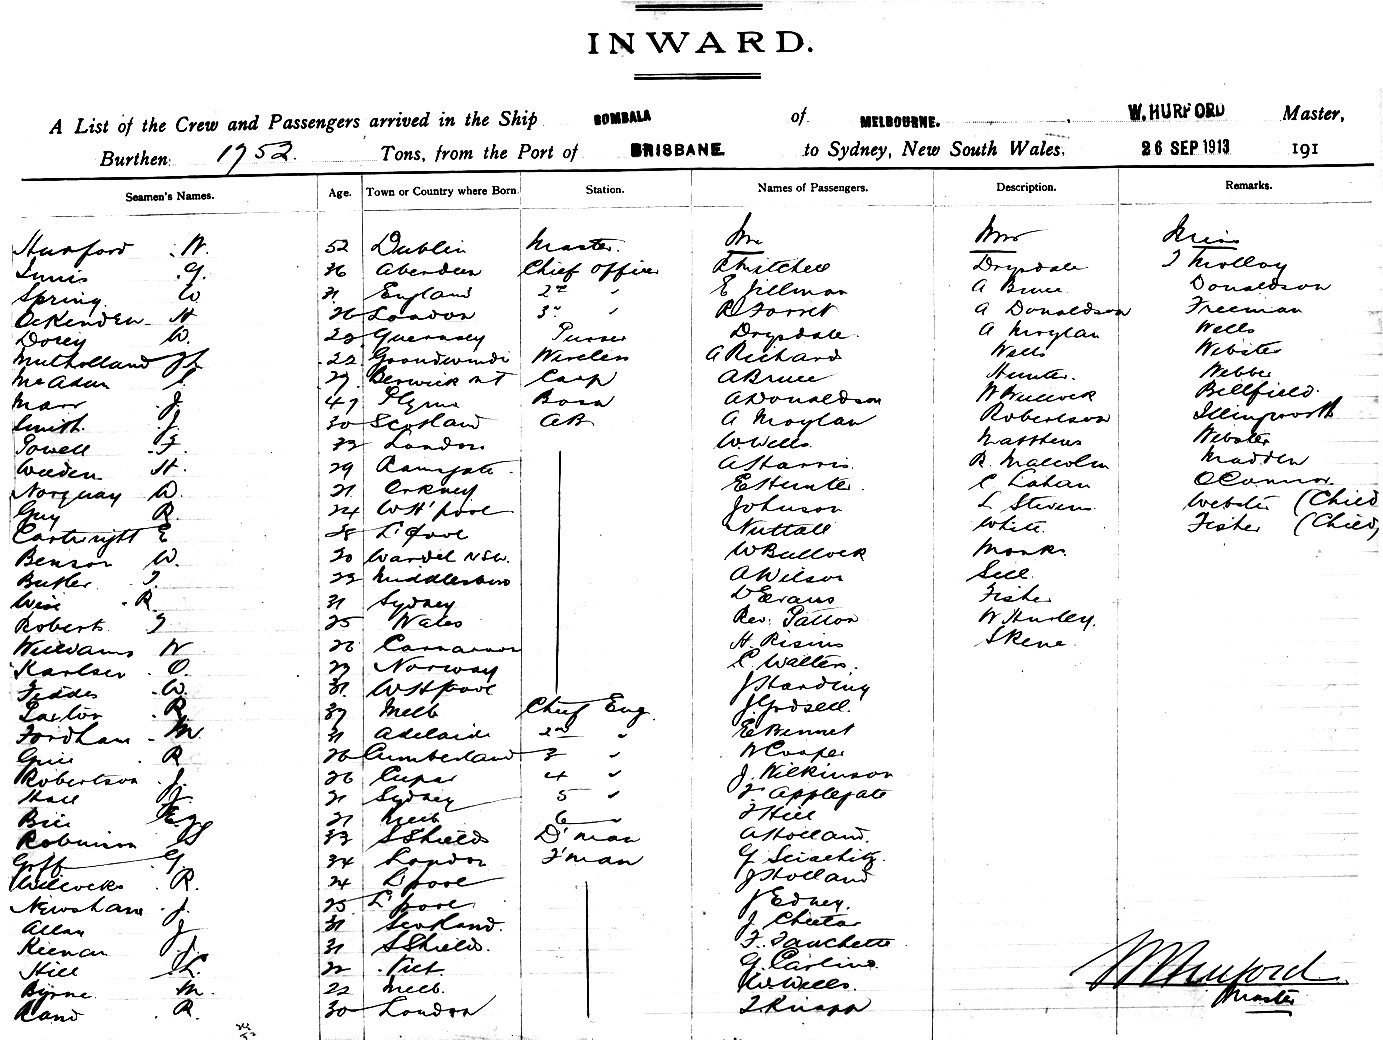 INWARD.
A List of the Crew and Passengers arrived in the Ship BOMBALA of MELBOURNE. W. HURFORD Master,
Burthen 1952. Tons, from the Port of BRISBANE to Sydney, New South Wales, 26 SEP 1913 191
Seamen's Names. Age. Town or Country where Born Station. Names of Passengers. Description. Remarks.
Hurford W. 52 Dublin Master. Mr Mrs Miss
Innis G. 36 Aberdeen Chief Officer R Mitchell Drysdale J Molloy
Spring W 31 England 2nd " E Jillman A Bruce Donaldson
Ockenden H 26 London 3rd " R Forret A Donaldson Freeman
Dorey W. 23 Guernsey Purser Drysdale A Moylan Wells
Mulholland 22 Wireless A Richard Wells Webster
McAdam 29 Berwick NT Carp A Bruce Hunter. Webber
Marr J. 47 Bosn A Donaldson W Bullock Billfield
Smith J. 30 Scotland AB A Moylan Robertson Illingworth
Powell F. 33 London W Wells Matthews Webster
Weeden H. 29 Ramsgate A Harris. R. Malcolm Madden
Norquay W. 21 Orkney E Hunter C Lahan O'Connor
Guy R. 24 W H'pool Johnson L Stevens Webster (Child
Cartwright E 28 L'pool Nuttall White Fisher (Child)
Benson W. 20 Wardel NSW. W Bullock Monks
Butler T. 23 Middlesboro A Wilson Sell
Wise R. 31 Sydney D Evans Fisher
Roberts 25 Wales Rev. Patton W Hurley.
Williams W 26 Carnarvon H. Risins Skene
Karlsen O. 29 Norway C Walters.
Fiddes W. 31 W H pool J Harding
Paxton R. 37 Melb Chief Eng. J. Godsell
Fordham M 31 Adelaide 2nd " E Bennet
R 26 Cumberland 3 " W Cooper
Robertson J. 26 Cupar 4 " J. Wilkinson
Hall J. 21 Sydney 5 " F Applegate
21 Melb 6 " F Hill
Robinson 33 S Shields D'man A Holland.
Goff G. 34 London F'man G
Willcocks R. 24 L'pool J Holland
Newsham J. 25 L'pool J Edney.
Allan J 31 Scotland. J. Cheetar
Keenan J. 31 S Shields. F. Fauchette
Hill L. 22 Vict. G. Carline
Byrne M. 22 Melb. W Wells. W Hurford
Rand R. 30 London J Knapp Master